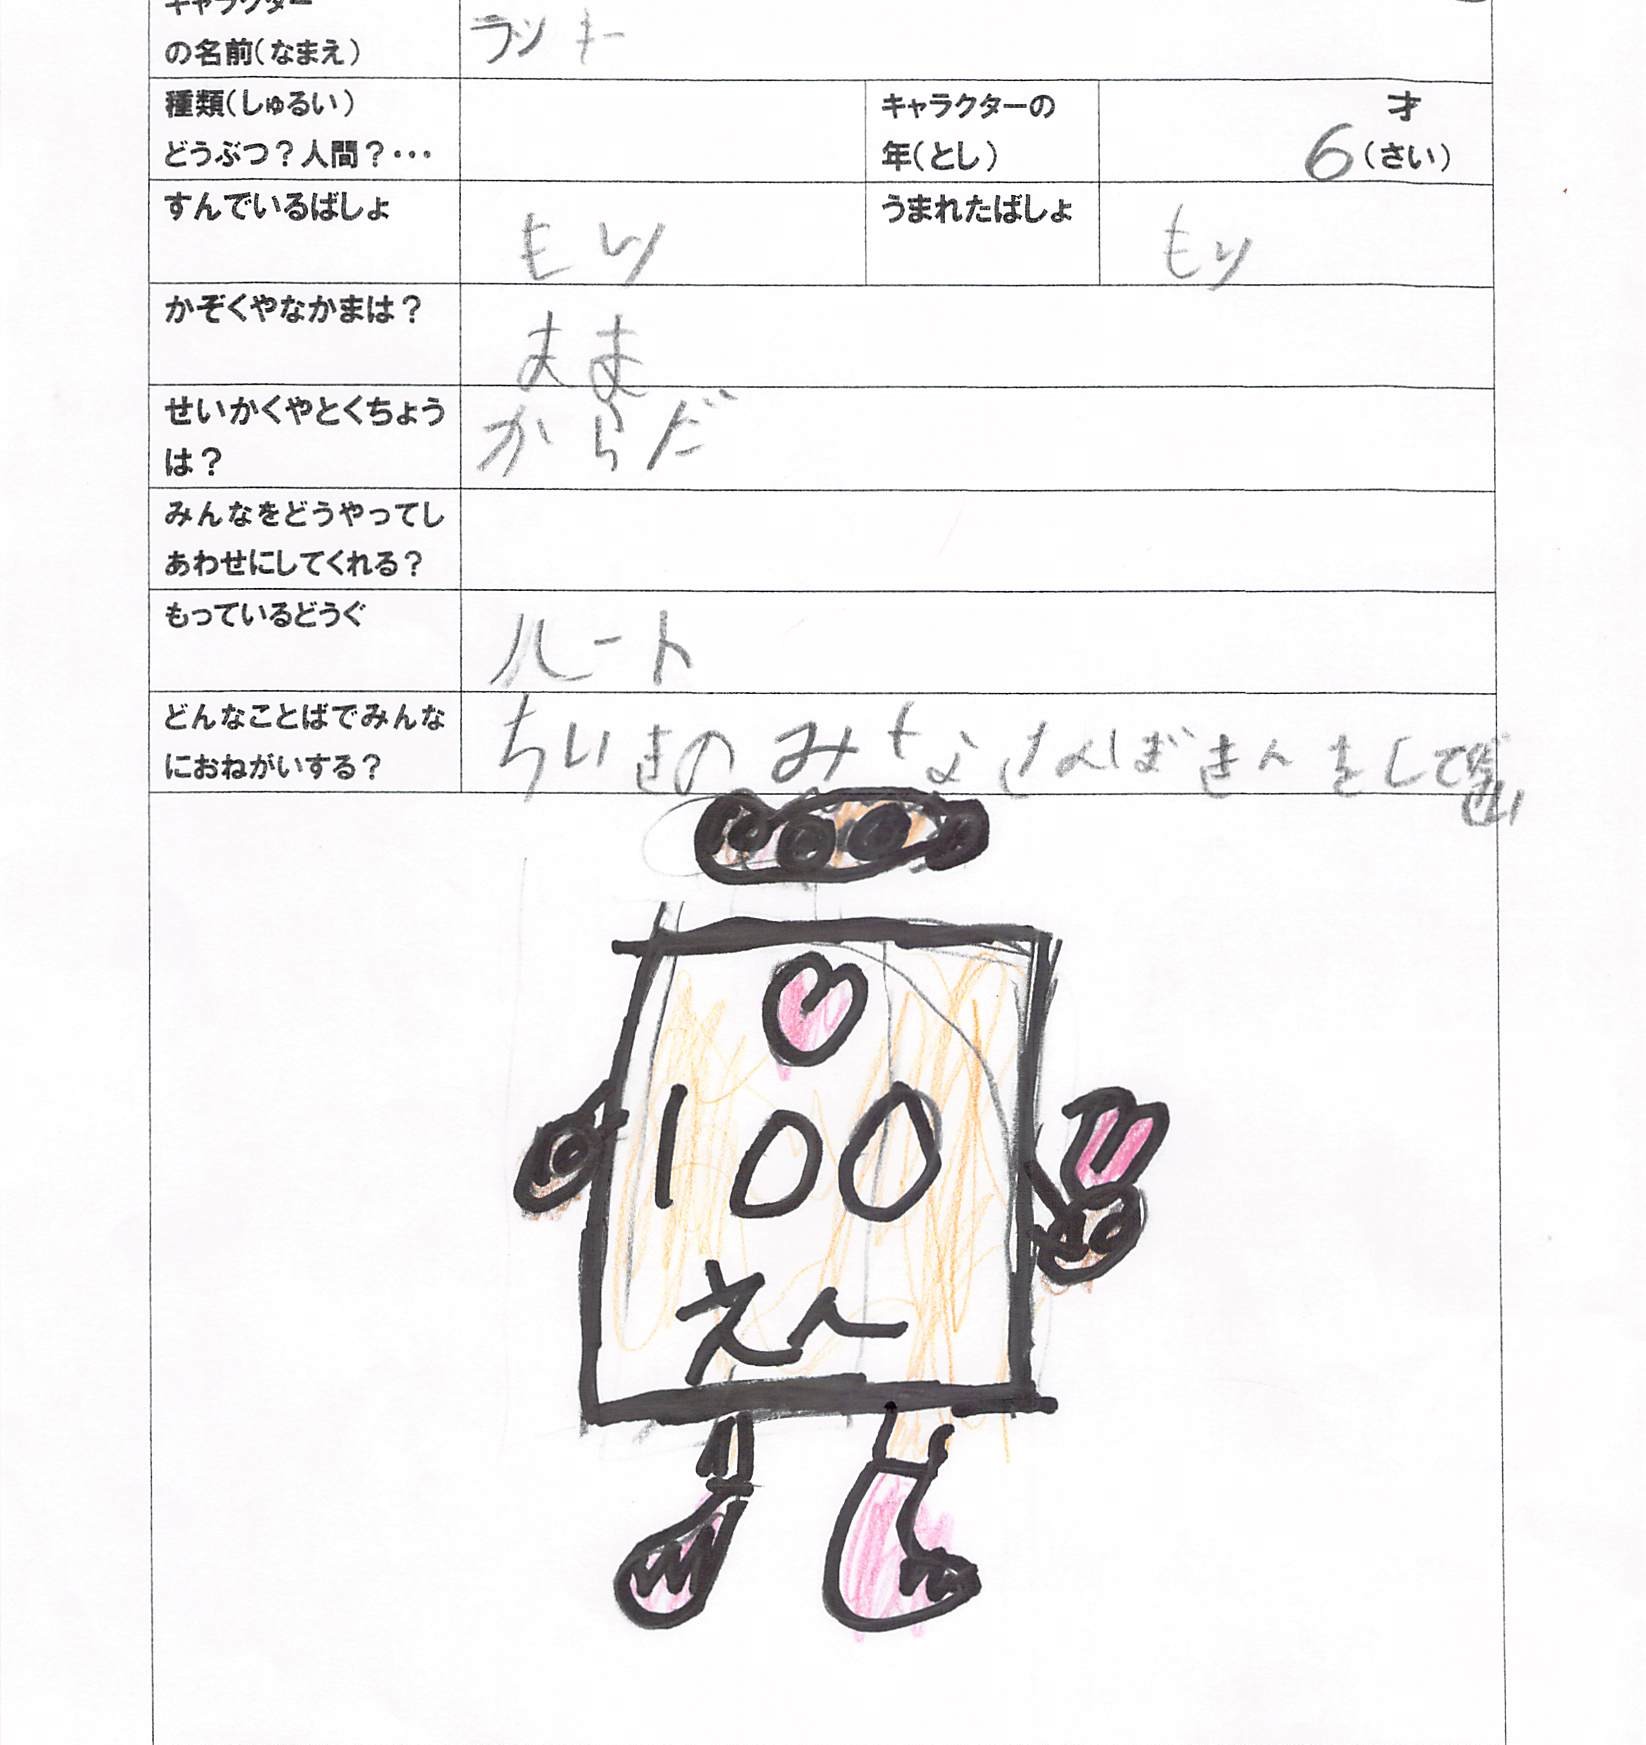 キャラクター
の名前(なまえ)
ラッキー
種類(しゅるい)
どうぶつ?人間?・・・
キャラクターの
年(とし)
才
6(さい)
すんでいるばしょ
もり
うまれたばしょ
もり
かぞくやなかまは?
まま
せいかくやとくちょう
は?
からだ
みんなをどうやってし
あわせにしてくれる?
もっているどうぐ
ハート
どんなことばでみんな
におねがいする?
ちいきのみなさんぼきんをして
さい
100
えん